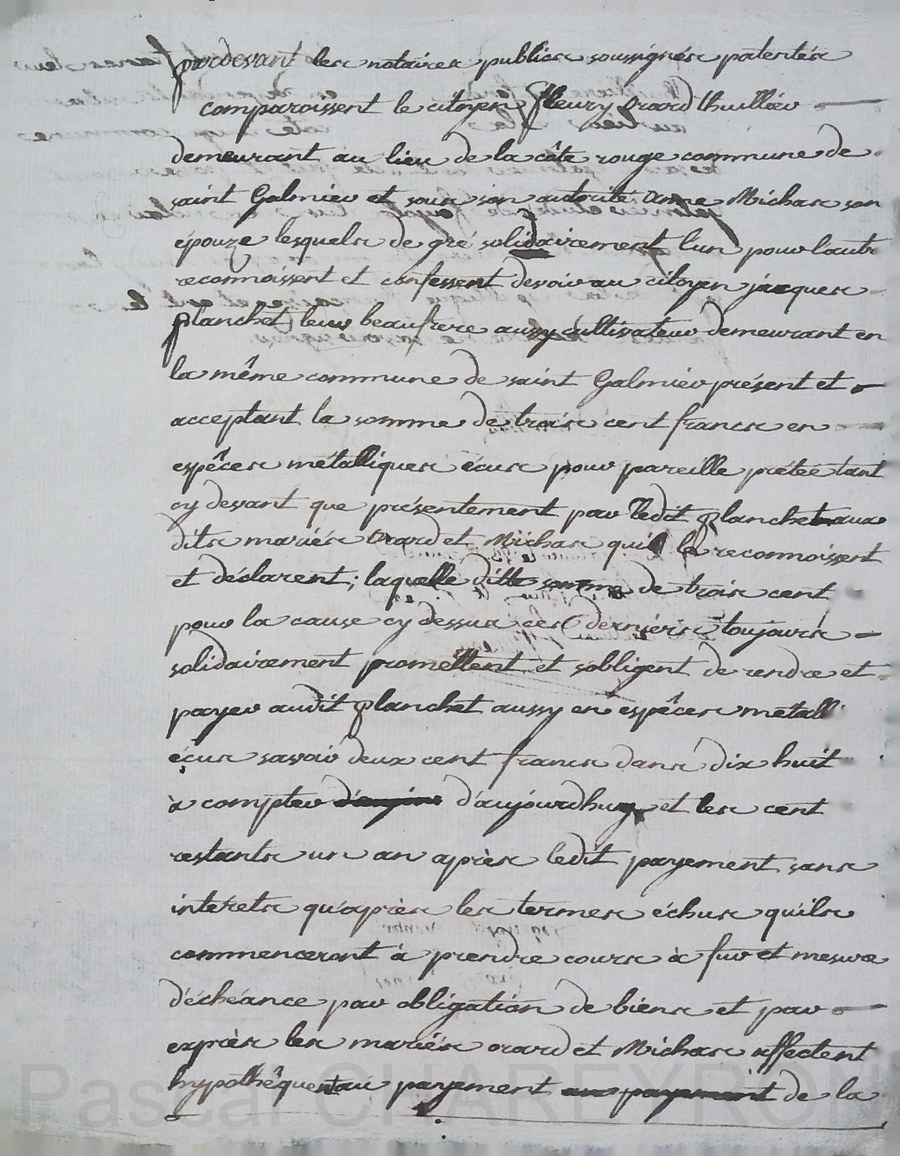 pardevant les notaires publics soussignés patentés
comparoissent le citoyen fleury orard thuillier
demeurant au lieu de la côte rouge commune de
saint Galmier et sous son autorité anne Michas son
épouze lesquels de gré solidairement l'un pour lautre
reconnoissent et confessent devoir au citoyen jacques
planchet leur beaufrere aussy cultivateur demeurant en
la même commune de saint Galmier présent et
acceptant la somme de trois cent francs en
espêces métalliques écus pour pareille prétée tant
cy devant que présentement par ledit planchet aux
dits mariés orard et Michas qui le reconnoissent
et déclarent; laquelle ditte somme de trois cent
pour la cause cy dessus ces derniers toujours
solidairement promettent et sobligent de rendre et
payer audit planchet aussy en espêces métall
écus savoir deux cent francs dans dix huit
à compter d'aujourdhuy et les cent
restants un an après ledit payement sans
intérets qu'après les termes échus quils
commenceront à prendre cours à fur et mesure
d'échéance par obligation de biens et par
exprès les mariés orard et Michas affectent
hypothêquent au payement au payement de la
Pascal CHAREYRON